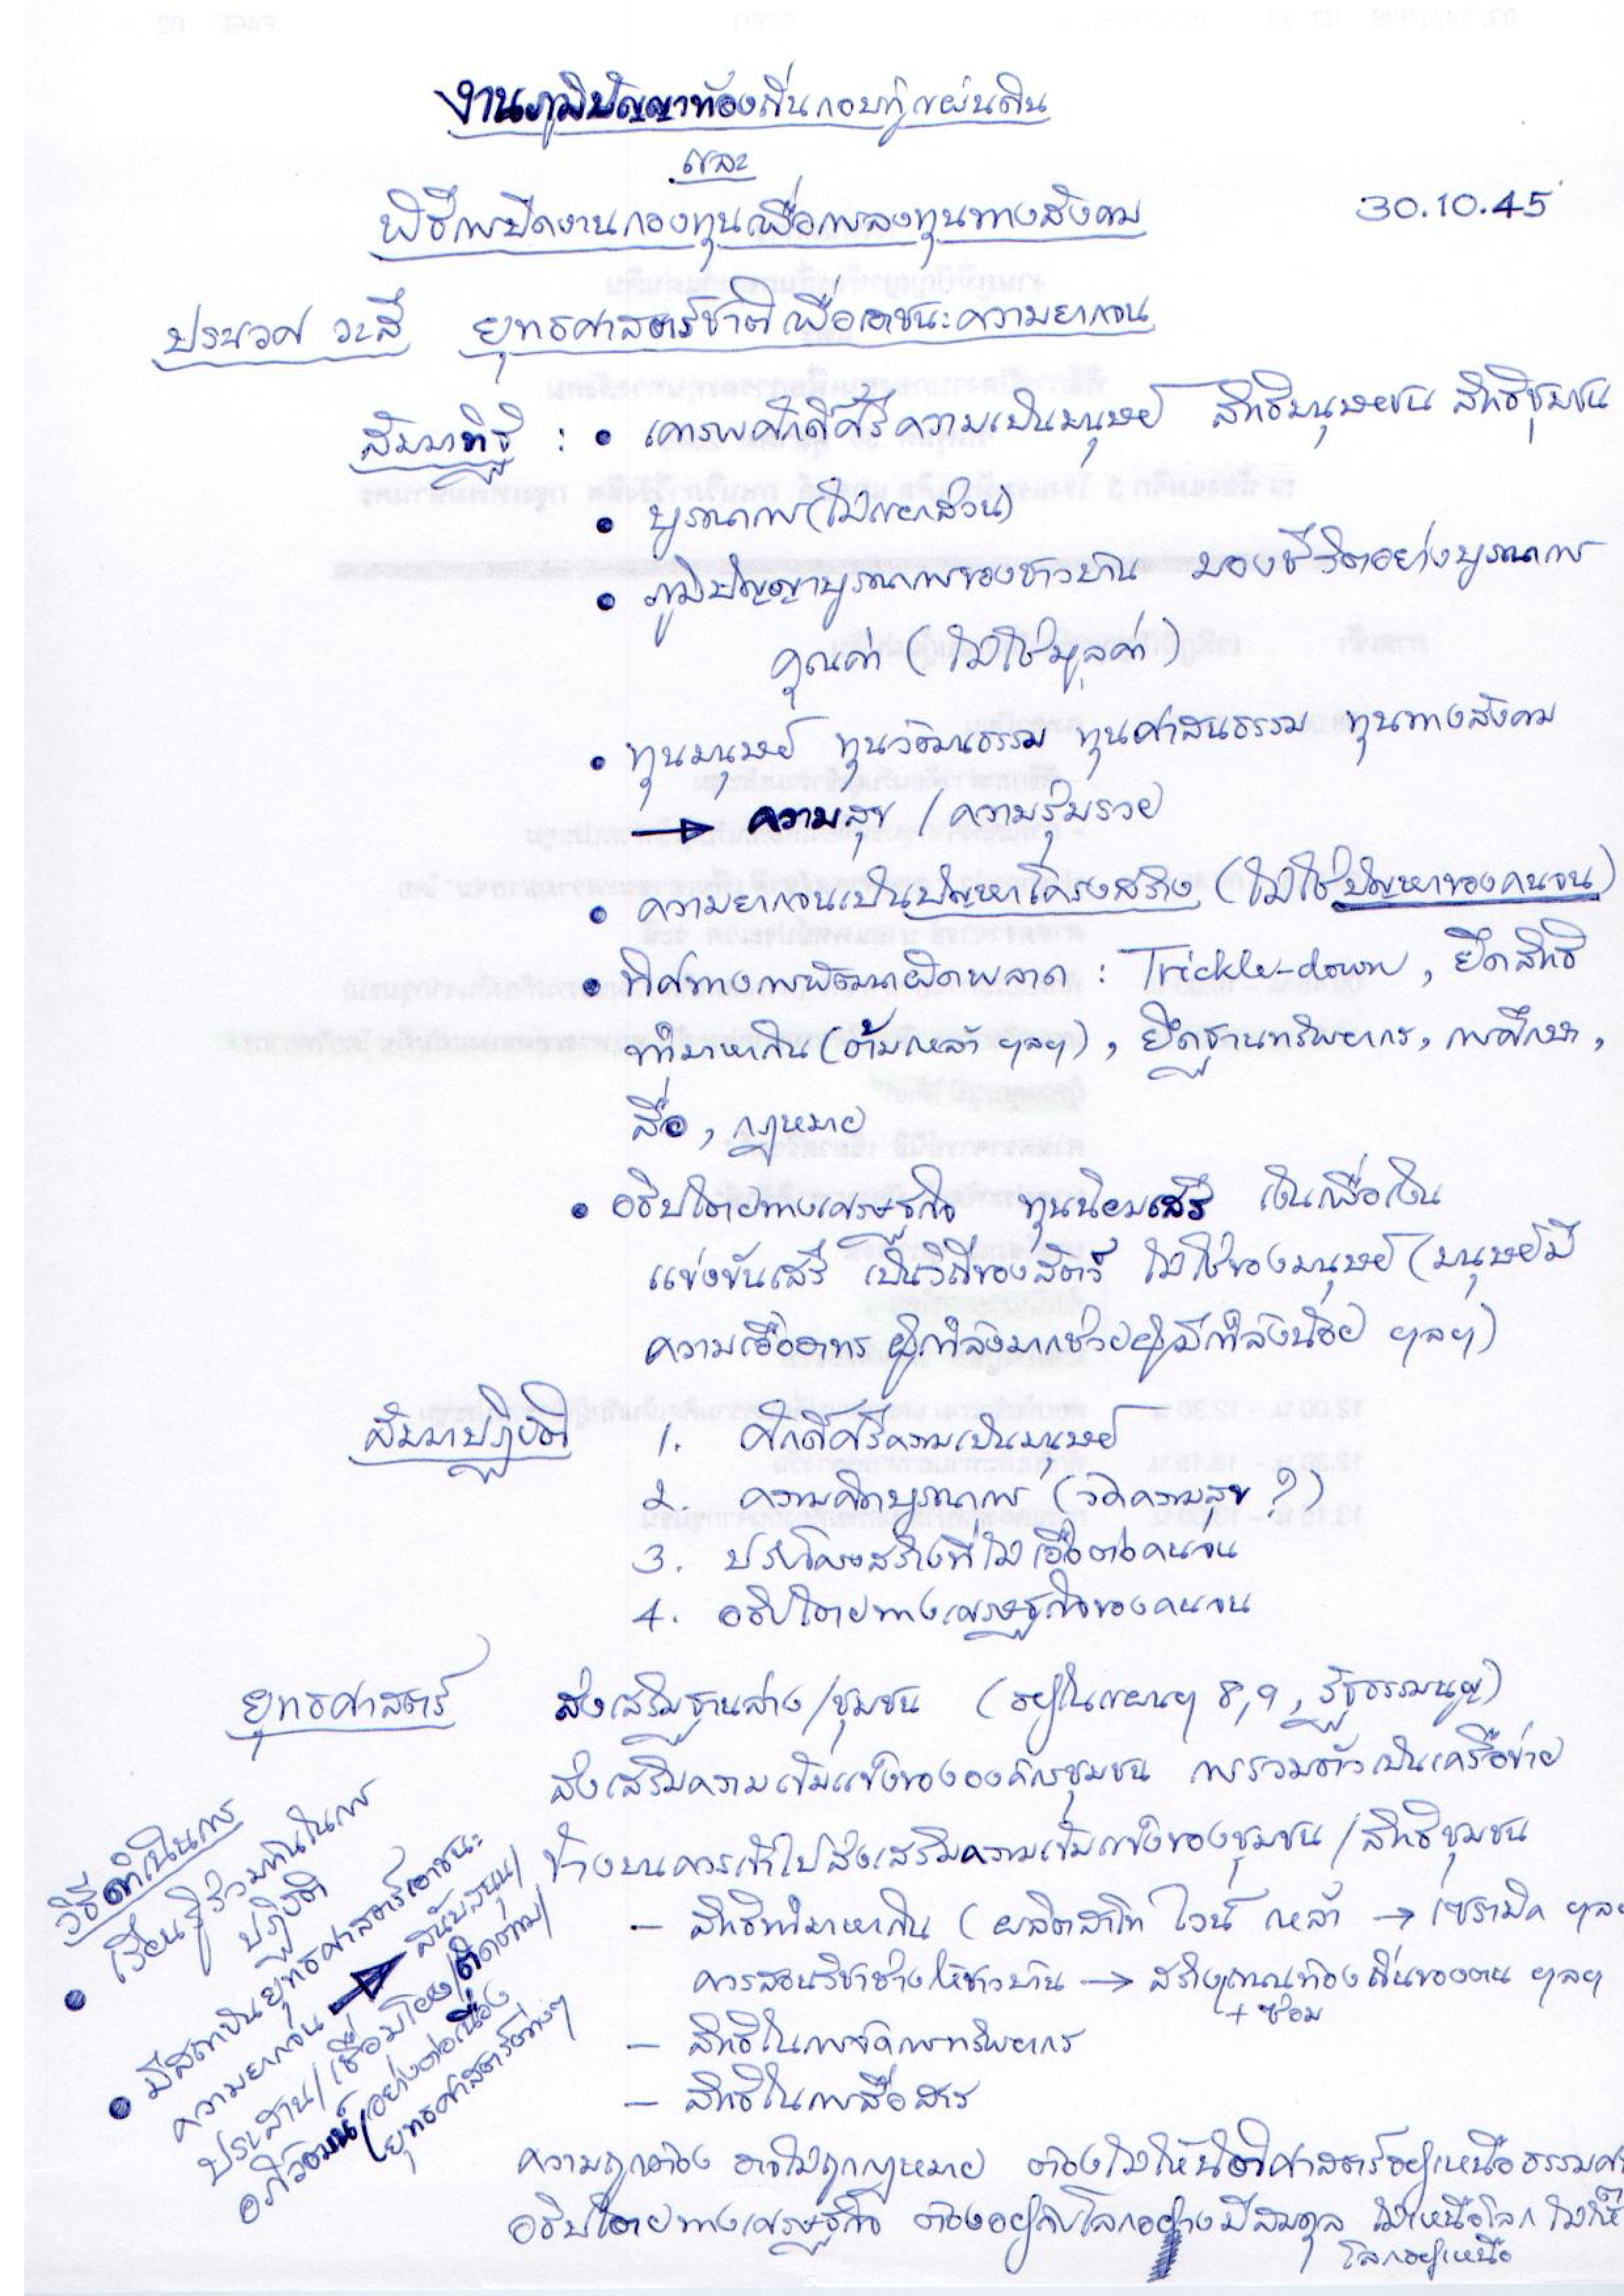 งานภูมิปัญญาท้องถิ่นกอบกู้แผ่นดิน
และ
พิธีการปิดงานกองทุนเพื่อการลงทุนทางสังคม
30.10.45
ประเวศ วะสี ยุทธศาสตร์ชาติเพื่อเอาชนะความยากจน
สัมมาทิฐิ : • เคารพศักดิ์ศรีความเป็นมนุษย์ สิทธิมนุษยชน สิทธิชุมชน
• บูรณาการ (ไม่แยกส่วน)
• ภูมิปัญญาบูรณาการของชาวบ้าน มองชีวิตอย่างบูรณาการ
คุณค่า (ไม่ใช่มูลค่า)
• ทุนมนุษย์ ทุนวัฒนธรรม ทุนศาสนธรรม ทุนทางสังคม
→ ความสุข / ความร่ำรวย
• ความยากจนเป็นปัญหาโครงสร้าง (ไม่ใช่ปัญหาของคนจน)
• ทิศทางการพัฒนาผิดพลาด : Trickle-down, ยึดสิทธิ
ทำมาหากิน (ต้มเหล้า ฯลฯ), ยึดฐานทรัพยากร, การศึกษา,
สื่อ, กฎหมาย
• อธิปไตยทางเศรษฐกิจ ทุนนิยมเสรี เงินเพื่อเงิน
แข่งขันเสรี เป็นวิถีของสัตว์ ไม่ใช่ของมนุษย์ (มนุษย์มี
ความเอื้ออาทร ผู้มีกำลังมากช่วยผู้มีกำลังน้อย ฯลฯ)
สัมมาปฏิบัติ 1. ศักดิ์ศรีความเป็นมนุษย์
2. ความคิดบูรณาการ (วัดความสุข ?)
3. ปรับโครงสร้างที่ไม่เอื้อต่อคนจน
4. อธิปไตยทางเศรษฐกิจของคนจน
ยุทธศาสตร์ ส่งเสริมฐานล่าง/ชุมชน (อยู่ในแผนฯ 8,9, รัฐธรรมนูญ)
ส่งเสริมความเข้มแข็งขององค์กรชุมชน การรวมตัวเป็นเครือข่าย
ข้างบนควรเข้าไปส่งเสริมความเข้มแข็งของชุมชน / สิทธิชุมชน
– สิทธิทำมาหากิน (ผลิตสาโท ไวน์ เหล้า → เซรามิค ฯลฯ
ควรสอนวิชาช่างให้ชาวบ้าน → สร้าง ท้องถิ่นของตน ฯลฯ
+ ซ่อม
– สิทธิในการจัดการทรัพยากร
– สิทธิในการสื่อสาร
ความถูกต้อง อาจไม่ถูกกฎหมาย ต้องไม่ให้นิติศาสตร์อยู่เหนือธรรมศา
อธิปไตยทางเศรษฐกิจ ต้องอยู่กับโลกอย่างมีสมดุล ไม่เหนือโลก ไม่ให้
โลกอยู่เหนือ
วิธีดำเนินการ
• เรียนรู้ร่วมกันในการ
ปฏิบัติ
• มีสถาบันยุทธศาสตร์เอาชนะ
ความยากจน → สนับสนุน/
ประสาน/เชื่อมโยง/ติดตาม/
อภิวัฒน์/อย่างต่อเนื่อง
(ยุทธศาสตร์ต่างๆ